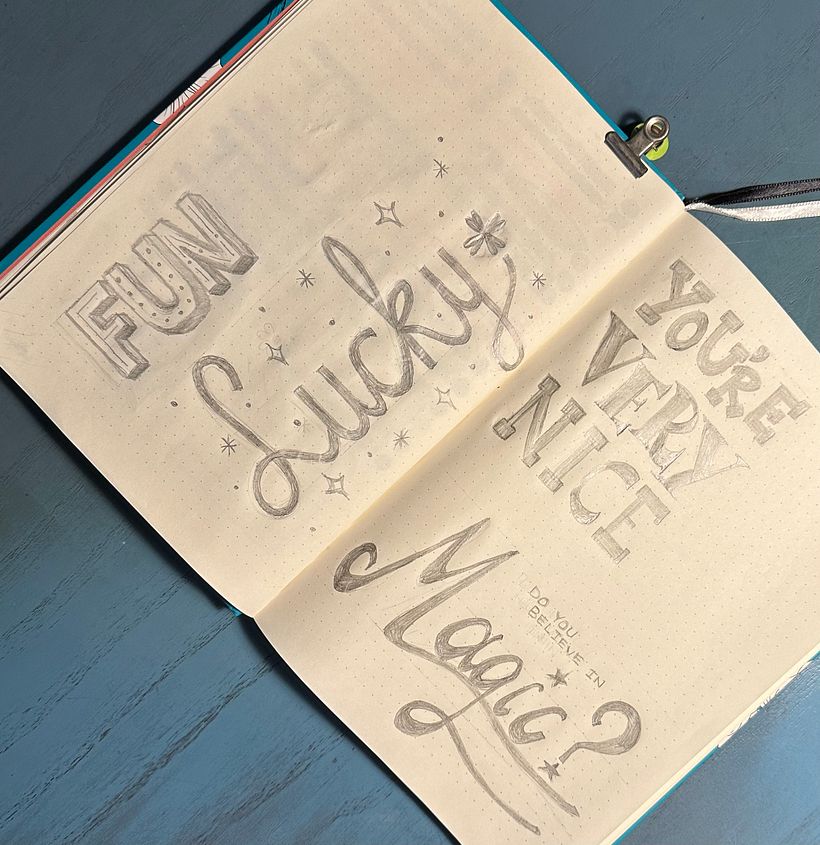 FUN
Lucky
YOU'RE
VERY
NICE
DO YOU
BELIEVE IN
Magic?